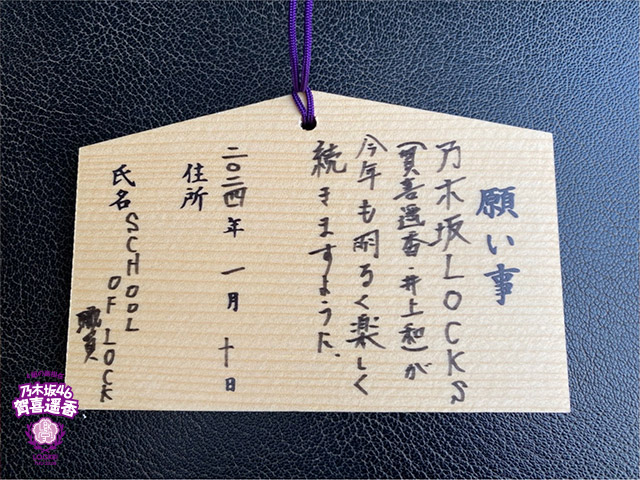 願い事
乃木坂LOCKS
(賀喜遥香・井上和)が
今年も明るく楽しく
続きますように、
二〇二四年 一月 十日
住所
氏名 SCHOOL
OF LOCK
職員
乃木坂46
賀喜遥香